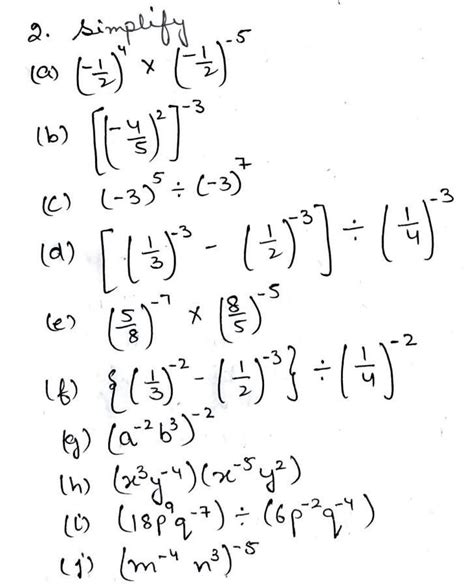 2. Simplify
(a) (-1/2)^4 × (-1/2)^-5
(b) [(-4/5)^2]^-3
(c) (-3)^5 ÷ (-3)^7
(d) [(1/3)^-3 - (1/2)^-3] ÷ (1/4)^-3
(e) (5/8)^-7 × (8/5)^-5
(f) {(1/3)^-2 - (1/2)^-3} ÷ (1/4)^-2
(g) (a^-2 b^3)^-2
(h) (x^3 y^-4)(x^-5 y^2)
(i) (18p^9 q^-7) ÷ (6p^-2 q^-4)
(j) (m^-4 n^3)^-5